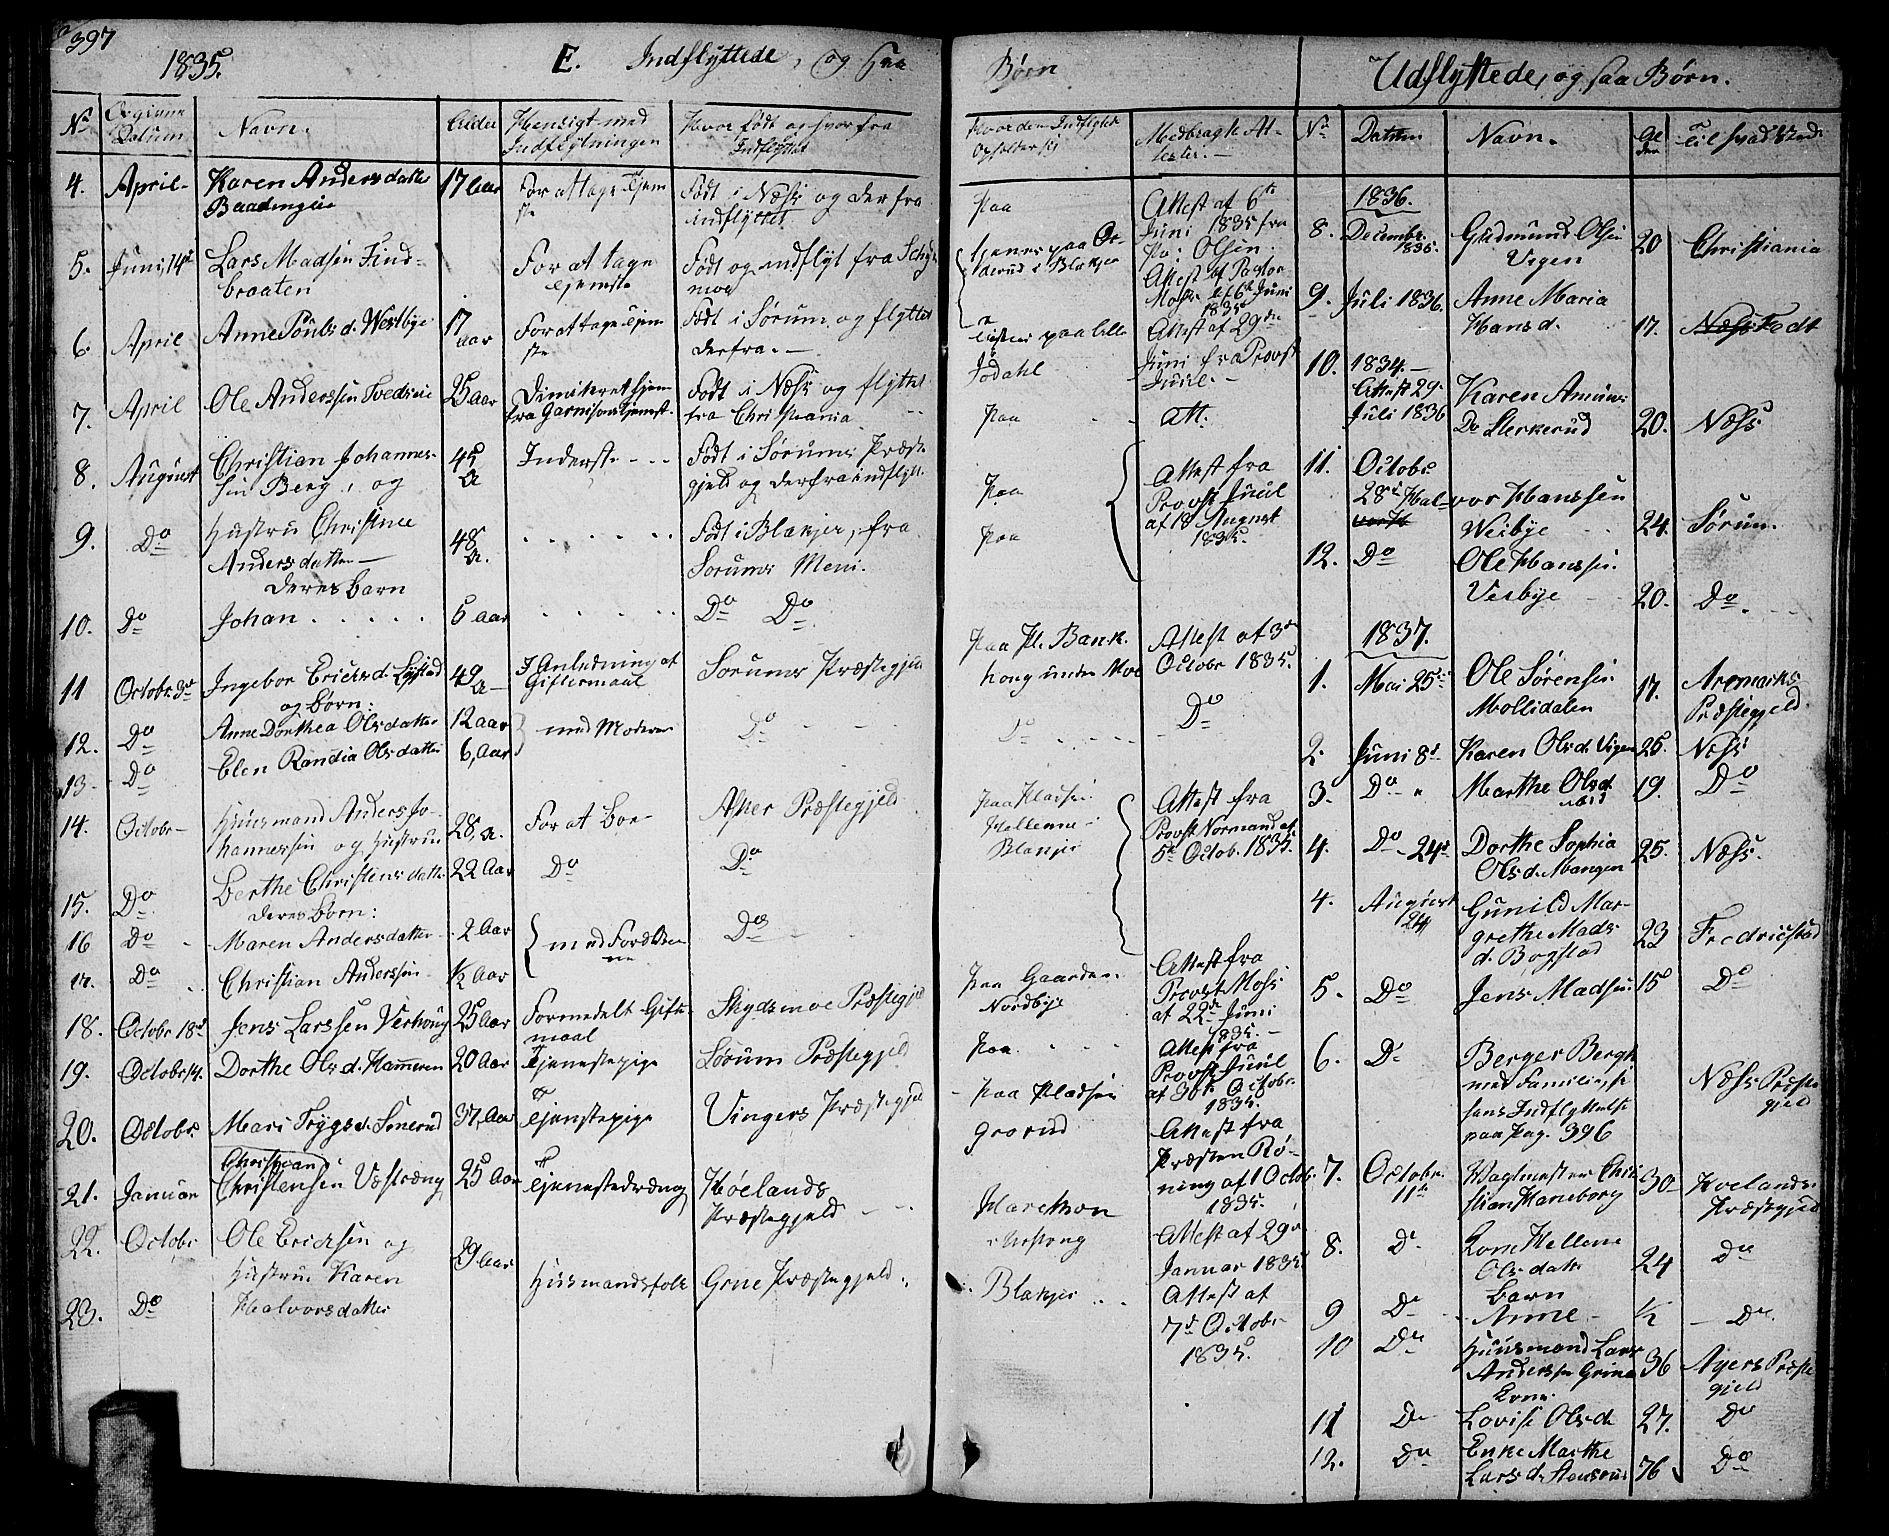 397
1835.
E. Indflyttede, og saa
Børn
Udflyttede, og saa Børn.
No
Datum
Navn.
Alder
Hensigt med
Indflytningen
Hvor født og hvorfra
Indflyttet
Hvor den Indflytte
Opholder sig
Medbragte At-
tester.
No
Datum
Navn.
Al
der
Til hvad Sted
4. April- Karen Andersdatter 17 Aar For at tage Tjene
ste Født i Næss og derfra
indflyttet paa Attest af 6te
Juni 1835 fra
Olsen.
5. Juni 14de Lars Madsen Find-
braaten For at tage
Tjeneste Født og indflyt fra Schyds
moe tjener paa
i Blakjer Attest af Pastor
Moss af 6te Juni
1835
6. April Anne Povls d. Westbye 17
aar For at tage Tjene
ste Født i Sørum og flyttet
derfra.- tjener paa lille
Jødahl Attest af 29de
Juni fra Provst
Juul.-
7. April Ole Andersen 25 aar Dimitteret hjem
fra Garnisonstjenest. Født i Næss og flyttet
fra Christiania paa Att.
8. August Christian Johannes-
sen Berg, og 45
A Inderste - - Født i Sørums Præste
gjeld og derfra indflytt. paa Attest fra
Provst Juul
af 18 August
1835.
9. Do Hustru Christine
Andersdatter- 48
A. Født i Blakjer, fra
Sorums Meni. paa
deres barn
10. Do Johan 5 aar Do Do
11 Octobr 3de Ingebor Ericks d. Lystad 49
A- I Anledning af
Giftermaal Sorums Præstegjeld paa Pl. Bank
houg under Moe Attest af 3de
Octobr 1835.
og børn:
12. Do Anne Dorthea Olsdatter 12 aar med Moderen Do Do Do
13. Do Elen Randia Olsdatter 6, Aar
14. Octobr- Huusmand Anders Jo-
hannessen og Hustru 28, A. For at boe- Asker Præstegjeld paa Pladsen
Hellenne
Blakjer Attest fra
Provst Normand af
5te Octob. 1835.
15. Do Berthe Christensdatter 22 Aar Do Do
deres børn:
16 Do Maren Andersdatter 2 Aar med Foreldre
ne Do
17. Do Christian Andersen ½ Aar
18. Octobr 18de Jens Larssen Verhoug 25 Aar Formedelst Gifte
maal Skydsmoe Præstegjeld paa Gaarden
Nordbye Attest fra
Provst Moss
af 22de Juni
1835.-
19. Octobr 14. Dorthe Ols d. Hammeren 20 Aar Tjenestepige Sørum Præstegjeld paa Attest fra
Provst Juul
af 30te Octobr
1835.
20. Octobr. Mari Trygs d. 37, Aar Tjenestepige Vingers Præstegjeld paa Pladsen
Grorud Attest fra
Præsten Rø-
ning af 1 Octobr
1835.
21. Januar Christian
Christensen 25 Aar Tjenestedræng Hølands
Præstegjeld Harethon
Attest af 29de
Januar 1835
22. Octobr Ole Ericksen og
Hustru Karen 29 Aar Husmandsfolk Grue Præstegjeld. Blakjer Attest af
7de Octobr
1835.
23. Do Halvorsdatter
1836.
8. Decembr.
1835. Gudmund Olsen
Vigen 20 Christiania
9. Juli 1836. Anne Maria
Hans d. 17. Næss Født
10. 1834.-
Attest 29.
Juli 1836 Karen Amunds
Do 20. Næss
11. Octobr
28de Halvor Hanssen
Vesbye 24. Sørum.
12. Do Ole Hanssen
Vesbye 20. Do
1837.
1. Mai 25de Ole Sørensen
Mollidalen 17. Aremarks
Præstegjeld.
2. Juni 8de Karen Ols d. Vigen 25. Næss
3. Do Marthe Ols d. 19. Do
4. Do 24de Dorthe Sophia
Ols d. Mangen 25. Næss.
4. August
24 Gunild Mar-
grethe Mads
d. Bogstad 23 Fredricstad
5. Do Jens Madsen 15 Do
6. Do Berger Bergh
med Familie, se
hans Indflyttelse
paa Pag. 396 Næss Præste
gjeld
7. Octobr.
11te Vagtmester Chri
stian Haneborg 30- Hoelands
Præstegjeld
8. Do Kone Hellene
Olsdatter 24 Do
barn
9 Do Anne ½ Do
10 Do Huusmand Lars
Anderssen 36 Agers Præste
gjeld
Kone.
11 Do Lovise Ols d 27. Do
12. Do Enke Marthe
Lars d. 76 Do